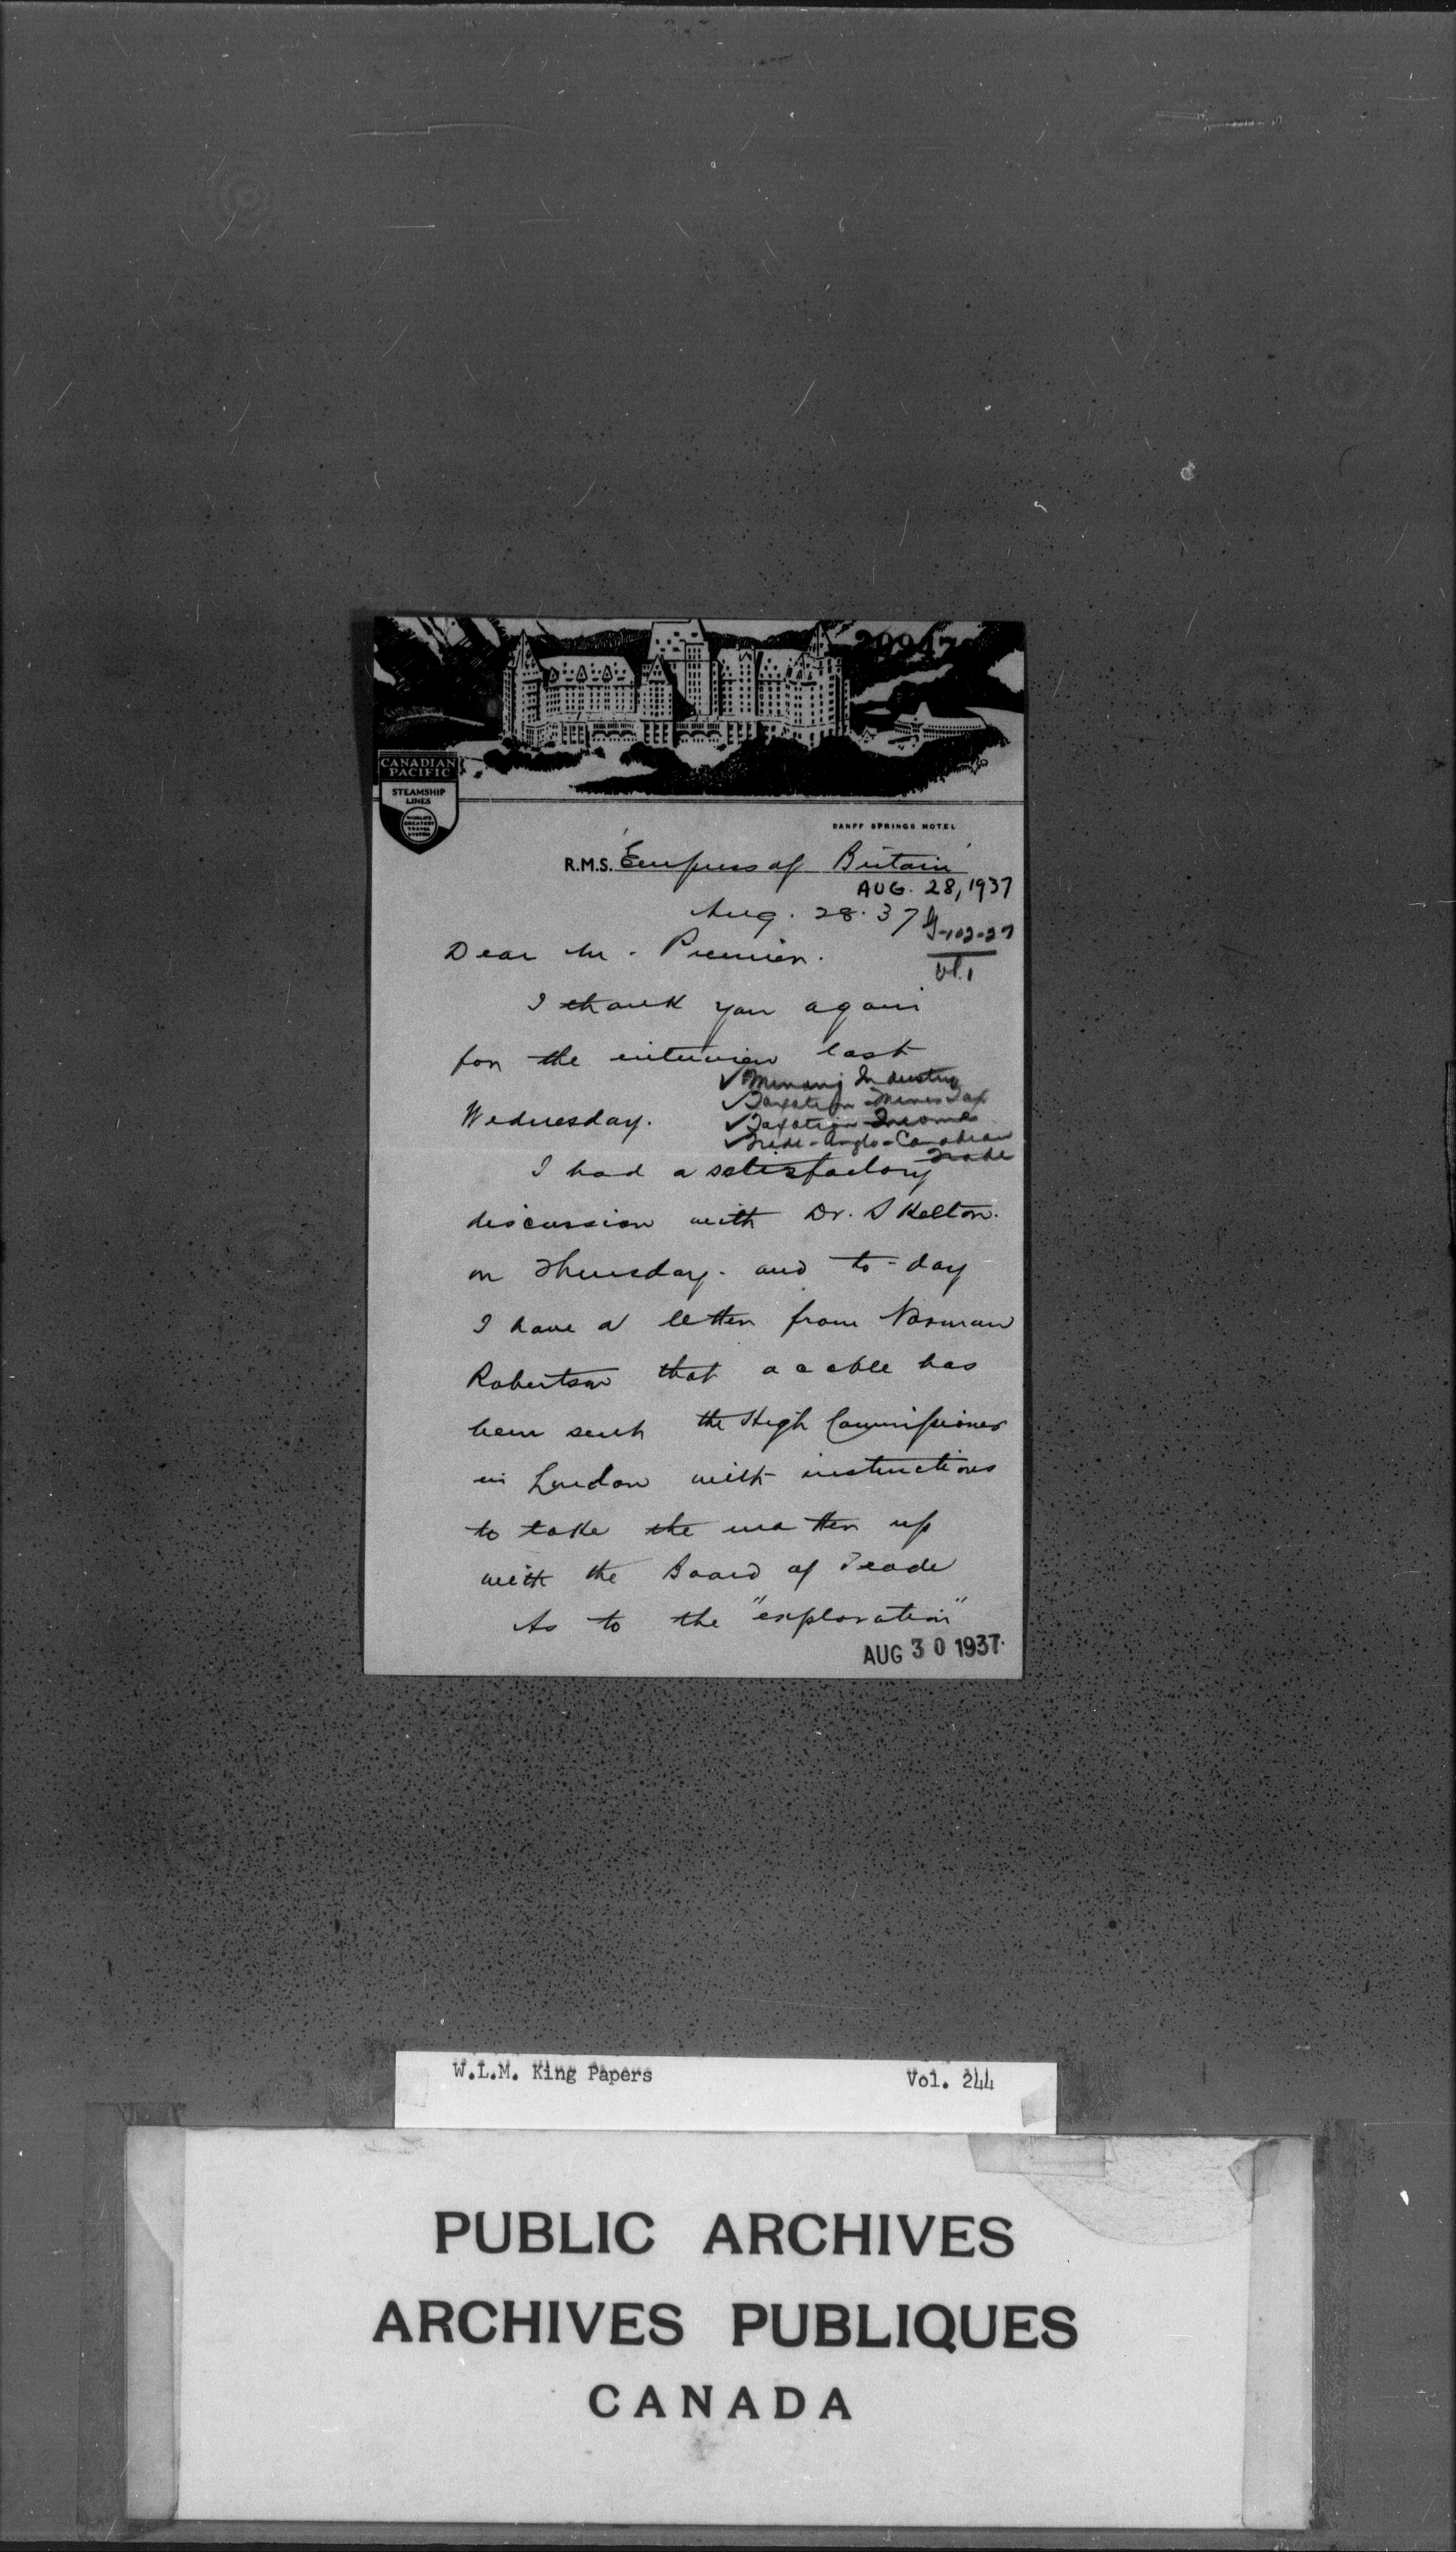 CANADIAN
PACIFIC
STEAMSHIP
LINES
WORLD'S
GREATEST
TRAVEL
SYSTEM
BANFF SPRINGS HOTEL
R.M.S. 'Empress of Britain'
AUG. 28, 1937
Aug. 28. 37
Dear Mr. Premier.
I thank you again
for the interview last
✓ Mining Industry
✓ Taxation - Mines Tax
Wednesday.
✓ Taxation - Income
✓ Trade - Anglo-Canadian
Trade
I had a satisfactory
discussion with Dr. Skelton.
on Thursday. and to-day
I have a letter from Norman
Robertson that a cable has
been sent the High Commissioner
in London with instructions
to take the matter up
with the Board of Trade
As to the "exploration"
AUG 30 1937
W.L.M. King Papers Vol. 244
PUBLIC ARCHIVES
ARCHIVES PUBLIQUES
CANADA